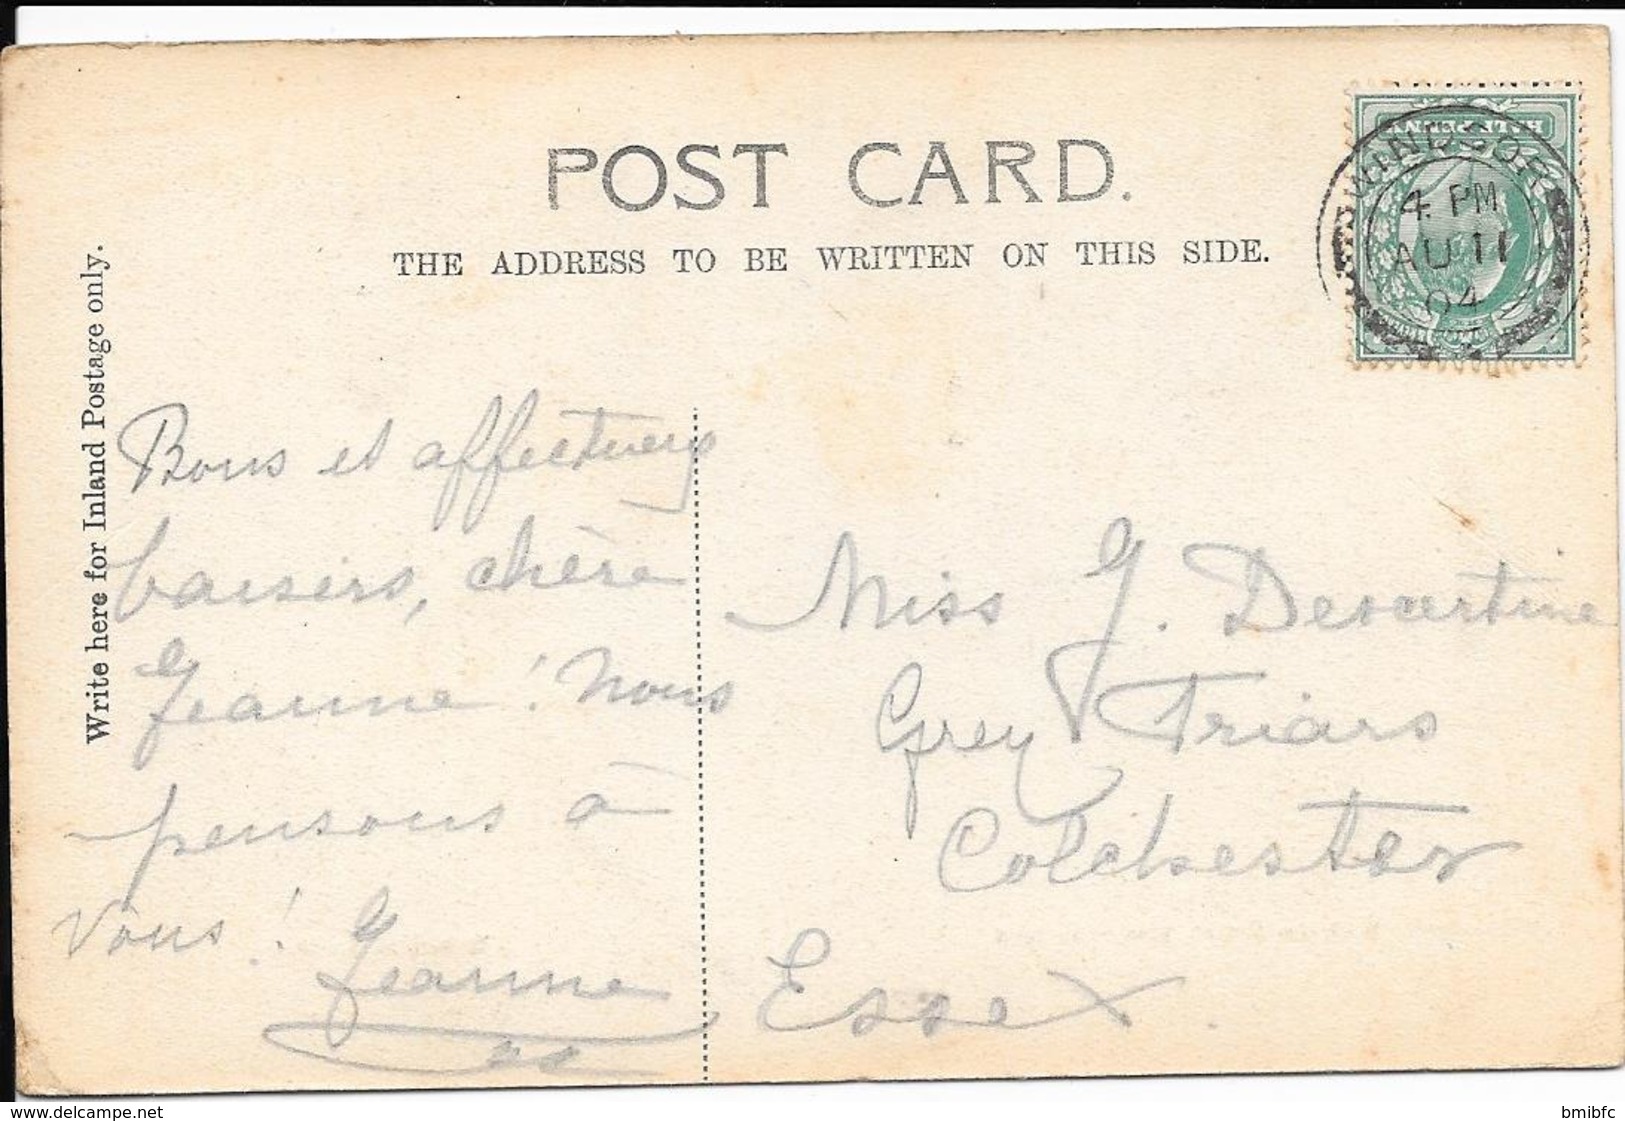 POST CARD.
THE ADDRESS TO BE WRITTEN ON THIS SIDE.
Write here for Inland Postage only.
HALFPENNY
WINDSOR
4 PM
AU 11
04
Bons et affectueux
baisers, chère
Jeanne ! Nous
pensons à
vous ! Jeanne
Miss J. Descartine
Grey Friars
Colchester
Essex.
delcampe.net
bmibfc